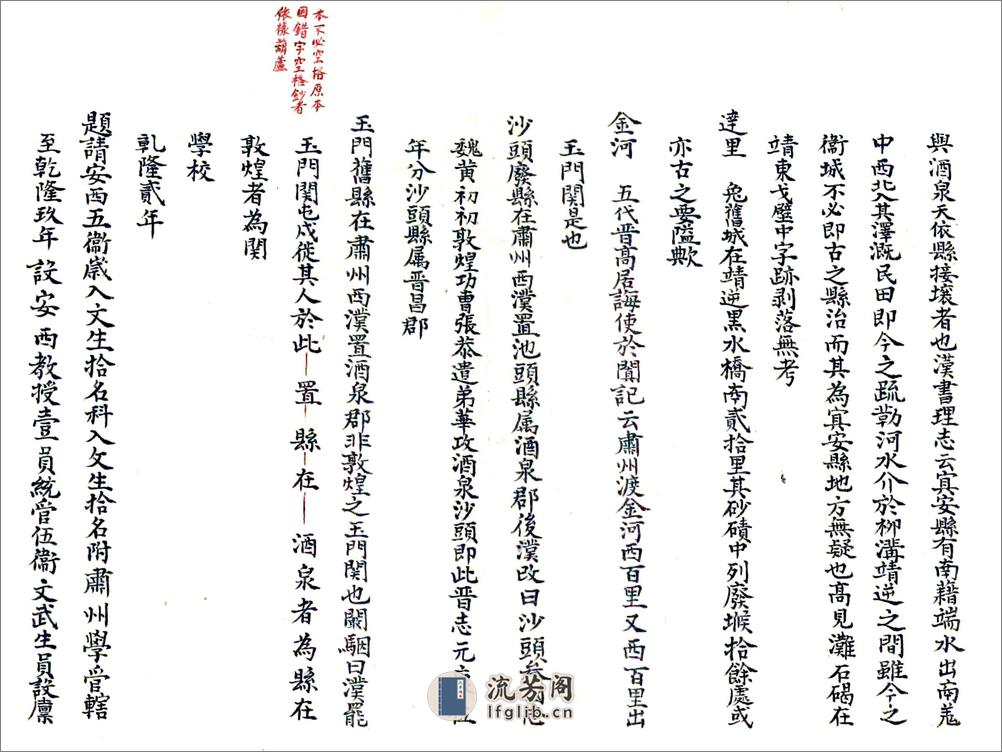 與酒泉天依縣接壤者也漢書理志云㝠安縣有南藉端水出南羗
中西北入其澤溉民田即今之疏勒河水介於柳溝靖逆之間雖今之
衞城不必即古之縣治而其為㝠安縣地方無疑也高見灘石碣在
靖東戈壁中字跡剥落無考
達里　兔舊城在靖逆黑水橋南貳拾里其砂磧中列廢堠拾餘處或
亦古之要隘歟
金河　五代晋高居誨使於闐記云肅州渡金河西百里又西百里出
玉門関是也
沙頭廢縣在肅州西漢置池頭縣属酒泉郡後漢改曰沙頭
魏黄初初敦煌功曹張恭遣弟華攻酒泉沙頭即此晋志元
年分沙頭縣属晋昌郡
玉門舊縣在肅州西漢置酒泉郡非敦煌之玉門関也闞駰曰漢罷
玉門関屯戍徙其人於此置縣在酒泉者為縣在
敦煌者為関
學校
乹隆貳年
題請安西五衞歲入文生拾名科入文生拾名附肅州學管轄
至乾隆玖年設安西教授壹員統管伍衞文武生員設廪
本下必空格原本
因錯字空格鈔者
依樣葫蘆
流芳阁
lfglib.cn